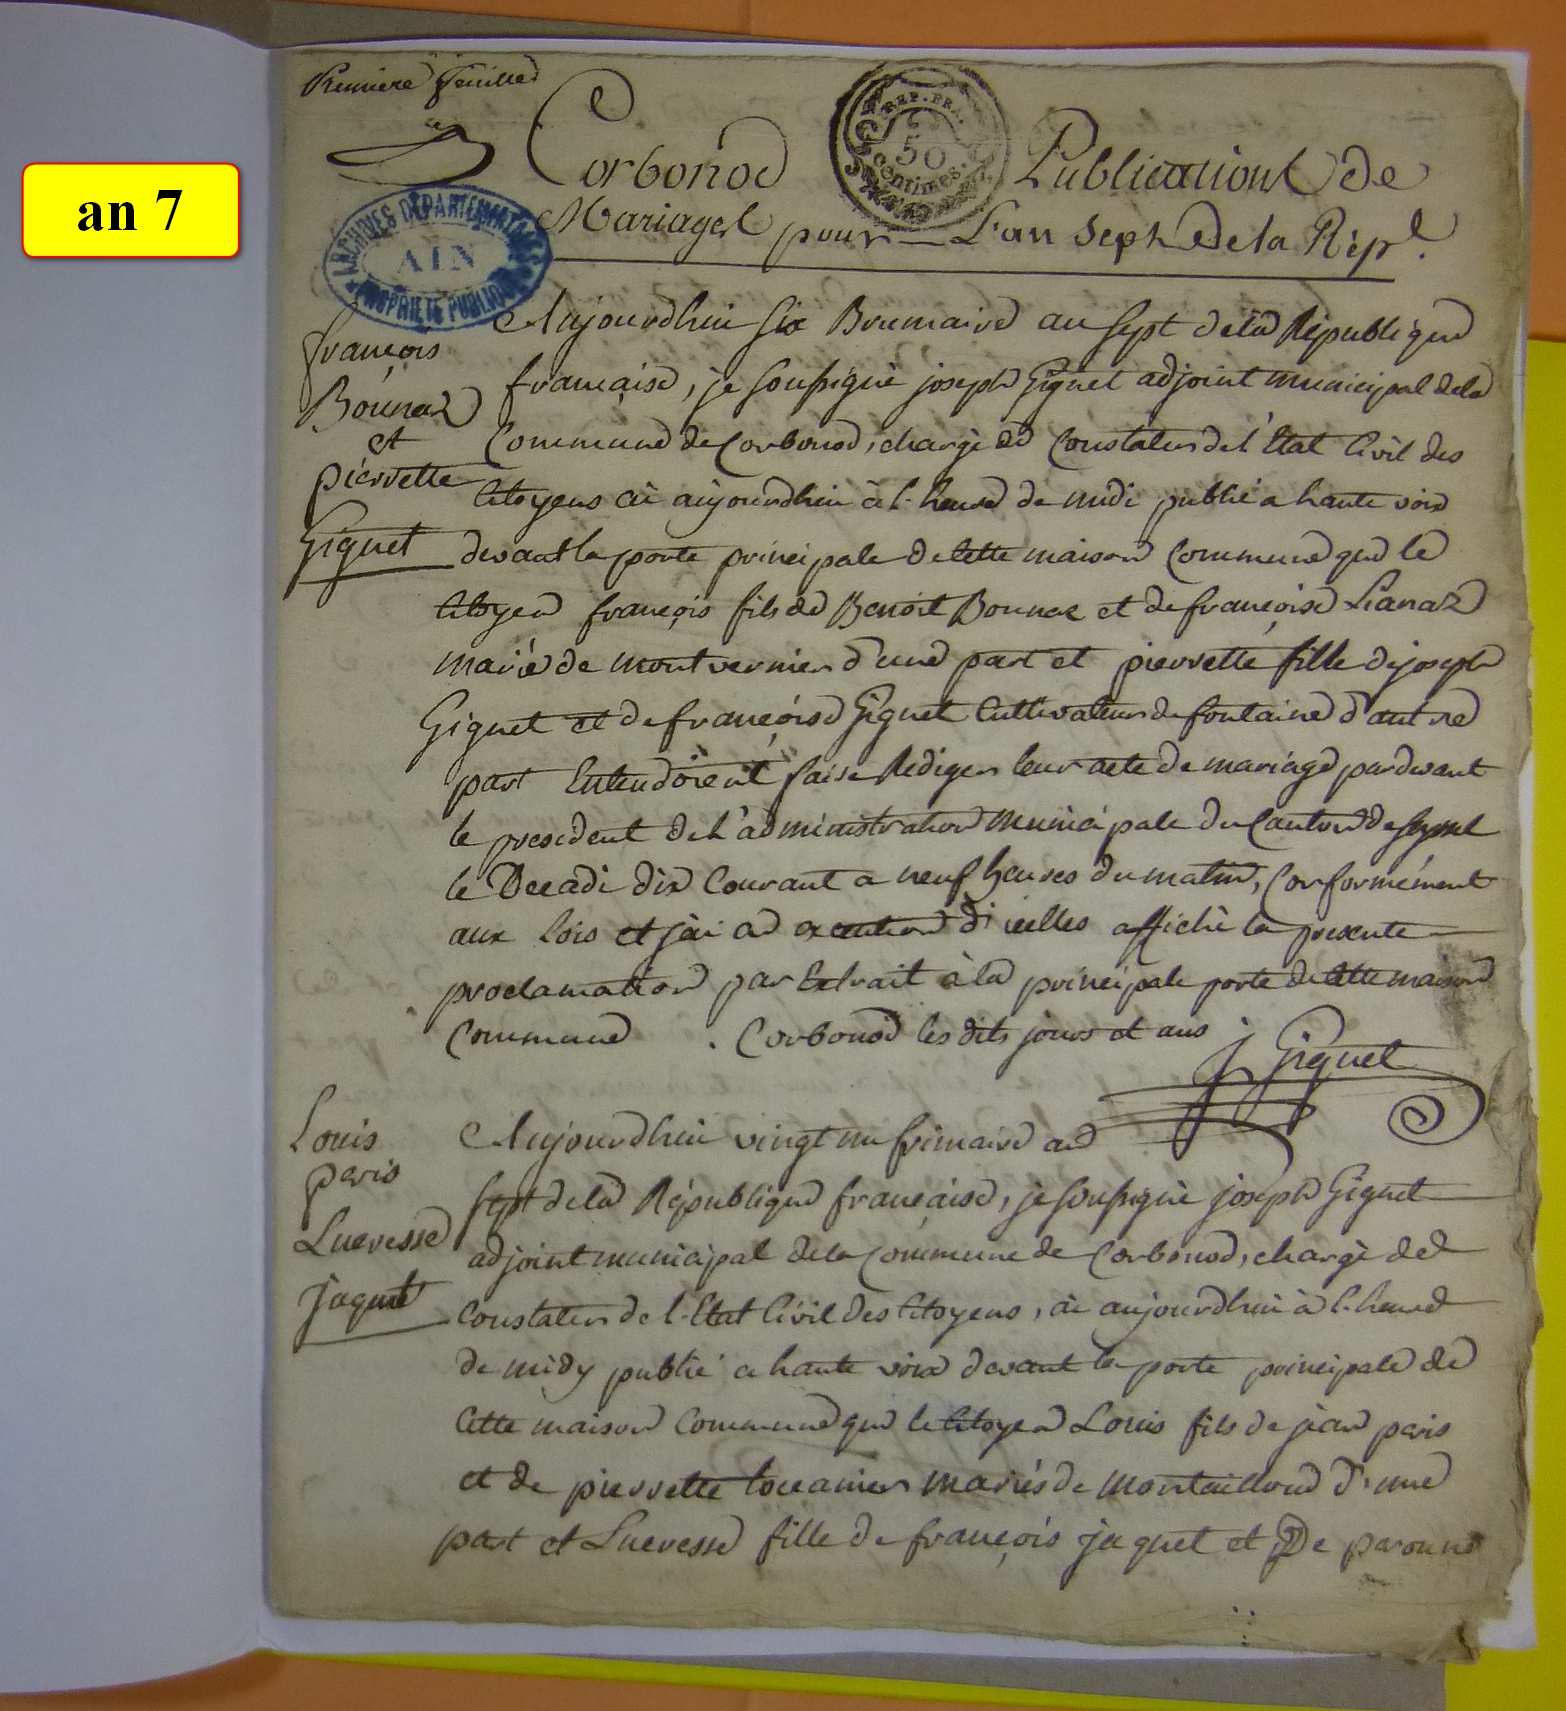 an 7
Premiere feuille
REP. FRA.
50
centimes
Corbonod Publications de
Mariages pour L'an Sept de la Rép.e
ARCHIVES DÉPARTEMENTALES
AIN
PROPRIÉTÉ PUBLIQUE
françois
Bounaz
et
pierrette
Giguet
Aujourdhui Six Brumaire an sept de la République
francaise, je soussigné joseph Giguet adjoint municipal de la
Commune de Corbonod, chargé de Constater de l'Etat Civil des
Citoyens ai aujourdhui à l'heure de midi publié a haute voix
devant la porte principale de Cette maison Commune que le
Citoyen françois fils de Benoit Bounaz et de françoise Lianaz
marié de montvernier d'une part et pierrette fille de joseph
Giguet et de françoise Giguet Cultivateur de fontaine d'autre
part Entendoient faire Rediger leur acte de mariage pardevant
le president de L'administration Municipale du Canton de seyssel
le Decadi dix Courant a neuf heures du matin, Conformément
aux lois et j'ai en execution d'icelles affiché la presente
proclamation par Extrait à la principale porte de Cette maison
Commune . Corbonod les dits jours et ans
j Giguet
Louis
paris
Lucresse
jaquet
Aujourdhui vingt un frimaire an
sept de la République francaise, je soussigné joseph Giguet
adjoint municipal de la Commune de Corbonod, chargé de
Constater de l'Etat Civil des Citoyens, ai aujourdhui à l'heure
de midy publié a haute voix devant la porte principale de
Cette maison Commune que le Citoyen Louis fils de jean paris
et de pierrette mariés de d'une
part et Lucresse fille de françois jaquet et De peronne